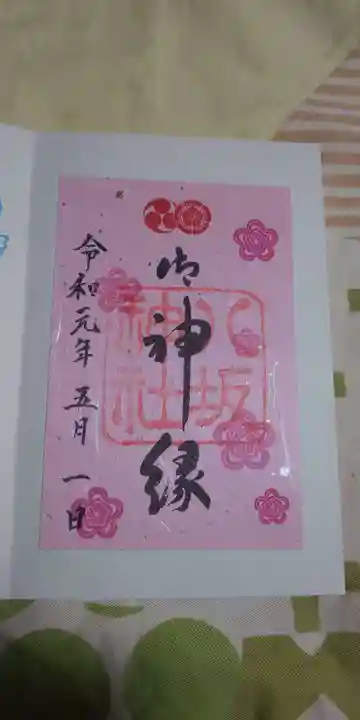 御神縁
八坂
神社
令和元年 五月 一日